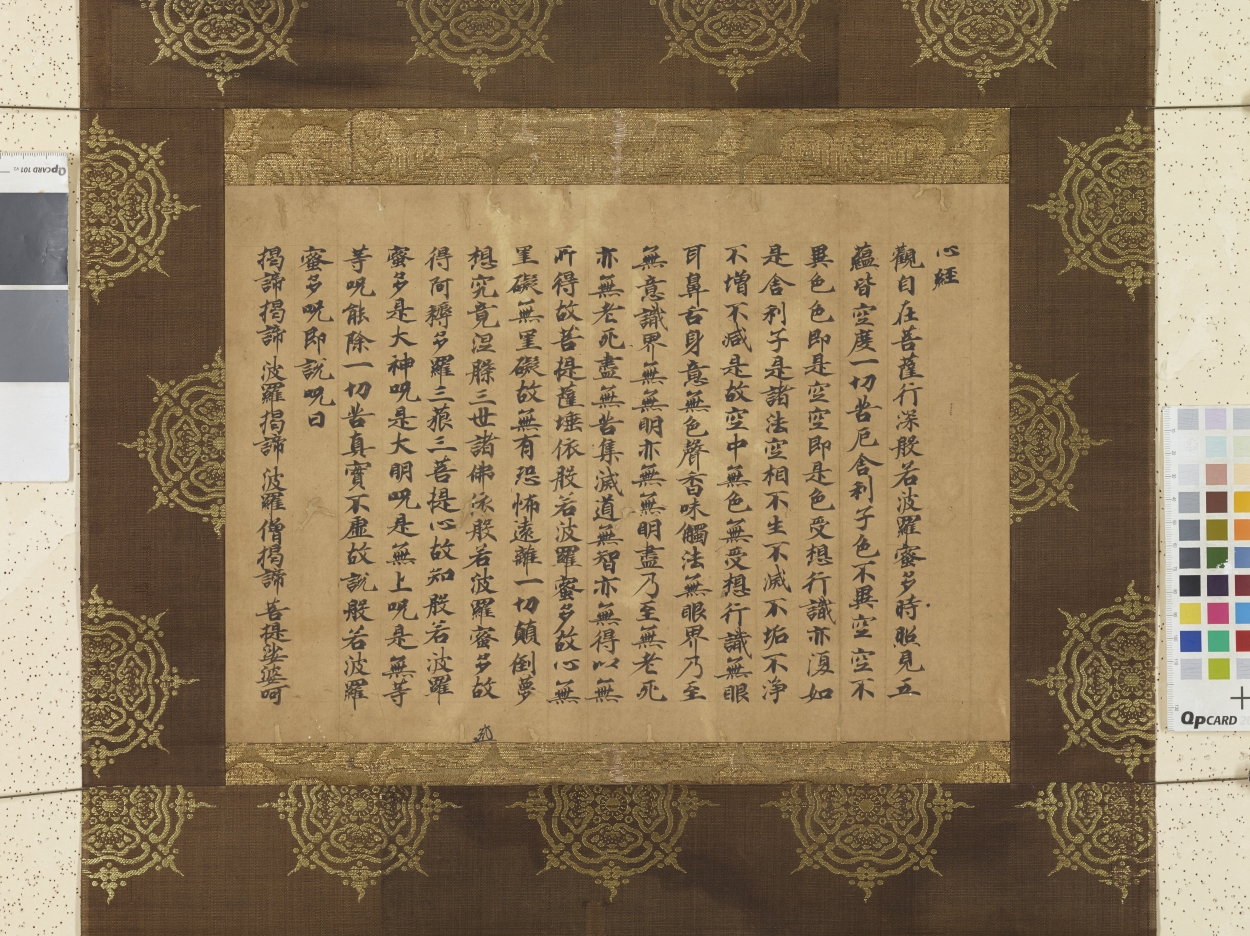 心経
觀自在菩薩行深般若波羅蜜多時照見五
蘊皆空度一切苦厄舍利子色不異空空不
異色色即是空空即是色受想行識亦復如
是舍利子是諸法空相不生不滅不垢不淨
不增不減是故空中無色無受想行識無眼
耳鼻舌身意無色聲香味觸法無眼界乃至
無意識界無無明亦無無明盡乃至無老死
亦無老死盡無苦集滅道無智亦無得以無
所得故菩提薩埵依般若波羅蜜多故心無
罣礙無罣礙故無有恐怖遠離一切顛倒夢
想究竟涅槃三世諸佛依般若波羅蜜多故
得阿耨多羅三藐三菩提心故知般若波羅
蜜多是大神呪是大明呪是無上呪是無等
等呪能除一切苦真實不虛故説般若波羅
蜜多呪即説呪曰
揭諦揭諦 波羅揭諦 波羅僧揭諦 菩提娑婆呵
QPCARD 101 v1
QPCARD